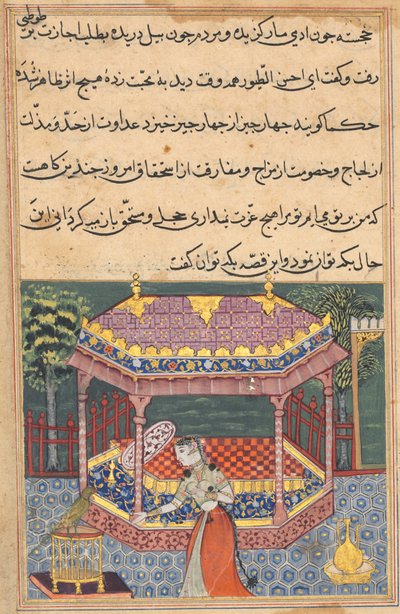 خجسته جون ادمی مار کزیده و مردم جون بیل دریده بطلب اجازت بر طوطی
رفت و کفت ای احسن الطیور همه وقت دید به محبت زدهٔ هیج اثر ظاهر نشده
حکما کویند جهار جیز از جهار جیز خیزد عداوت از حقد و مذلت
از لجاج و خصومت از مزاح و مفارقت از استخفاف امروز جندین کاهست
که من بر تو می ایم تو مرا هیج عزت نبداری باز میکردانی این
حال بکه توان نمود و این قصه بکه توان کفت